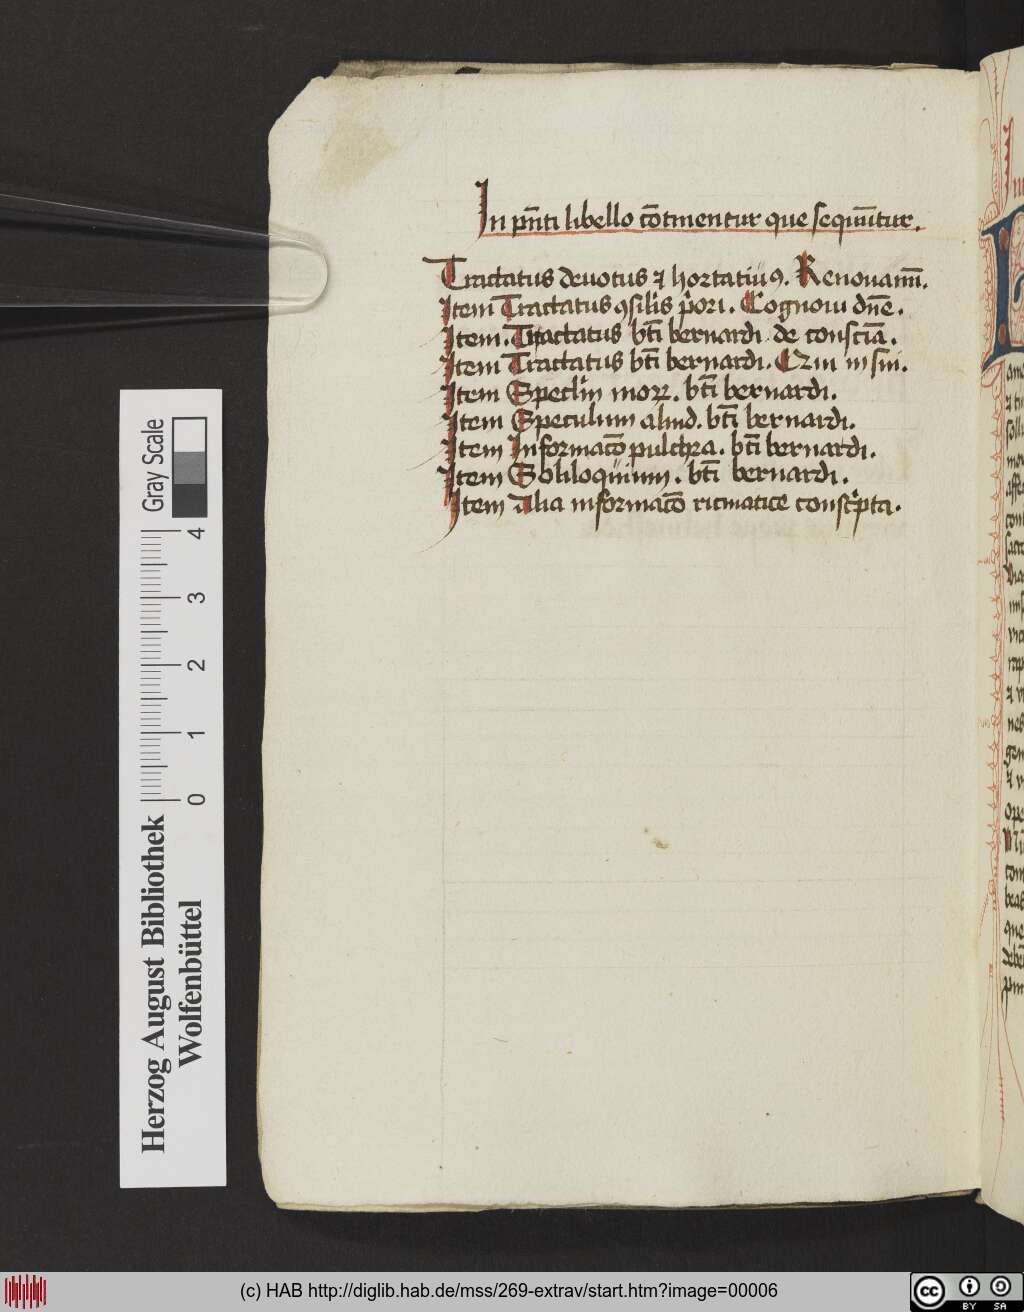 In pn̄ti libello cōtinentur que sequūtur.
Tractatus deuotus ⁊ hortatiuꝰ. Renouamī.
Item Tractatus ꝯsilis p̄ori. Cognoui dn̄e.
Item. Tractatus bt̄i bernardi de consciā.
Item Tractatus bt̄i bernardi.
Item Specl̄m moꝝ. bt̄i bernardi.
Item Speculum aliud. bt̄i bernardi.
Item Informacō pulchra. bt̄i bernardi.
Item Soliloquium. bt̄i bernardi.
Item Alia informacō ricmatice consc̄pta.
Gray Scale
4
3
2
1
0
Herzog August Bibliothek
Wolfenbüttel
(c) HAB http://diglib.hab.de/mss/269-extrav/start.htm?image=00006
cc BY SA